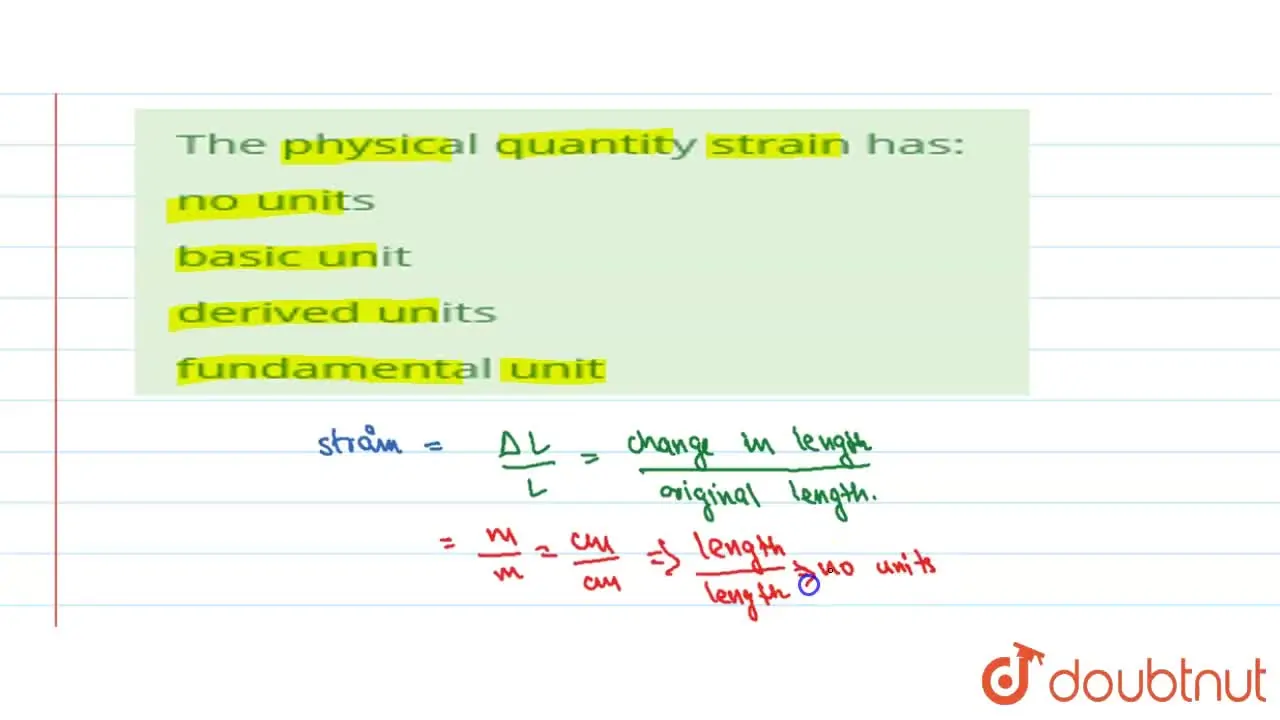 The physical quantity strain has:
no units
basic unit
derived units
fundamental unit
strain = ΔL/L = change in length/original length.
= m/m = cm/cm => length/length => no units
doubtnut